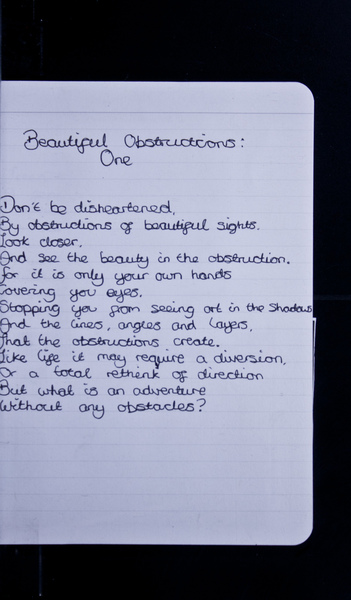 Beautiful Obstructions:
One
Don't be disheartened,
By obstructions of beautiful sights.
Look closer,
And see the beauty in the obstruction.
For it is only your own hands
Covering you eyes.
Stopping you from seeing art in the Shadows
And the lines, angles and layers,
That the obstructions create.
Like life it may require a diversion,
Or a total rethink of direction
But what is an adventure
Without any obstacles?